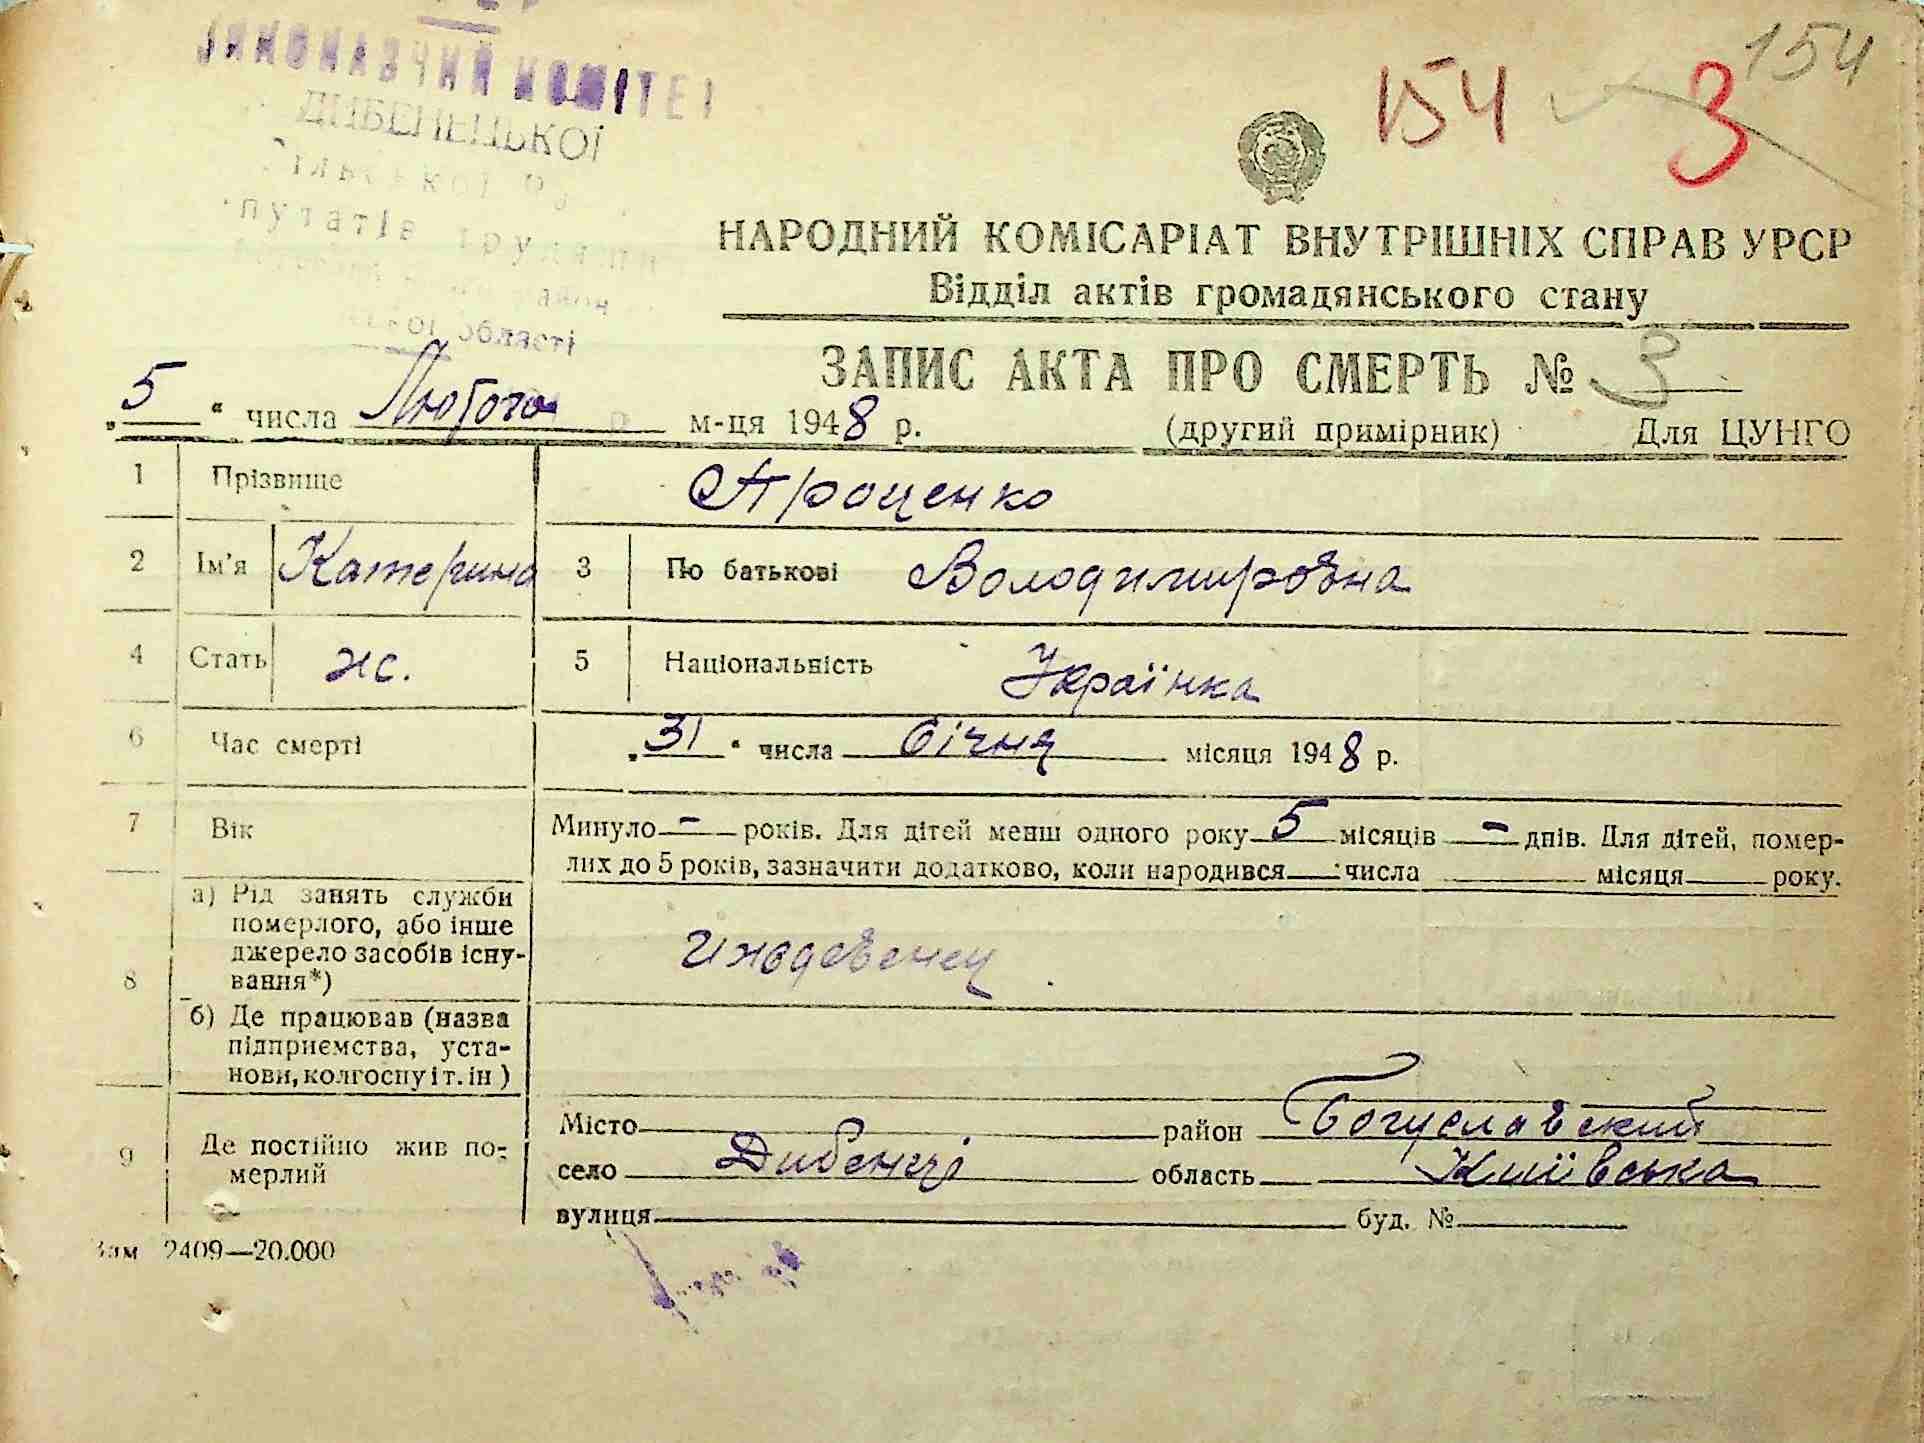 154
154 3
ВИКОНАВЧИЙ КОМІТЕТ
ДИБЕНЕЦЬКОЇ
області
НАРОДНИЙ КОМІСАРІАТ ВНУТРІШНІХ СПРАВ УРСР
Відділ актів громадянського стану
ЗАПИС АКТА ПРО СМЕРТЬ № 3
„5“ числа Лютого м-ця 1948 р. (другий примірник) Для ЦУНГО
1 Прізвище Проценко
2 Ім'я Катерина 3 По батькові Володимировна
4 Стать ж. 5 Національність Українка
6 Час смерті „31“ числа Січня місяця 1948 р.
7 Вік Минуло - років. Для дітей менш одного року 5 місяців - днів. Для дітей, помер-
лих до 5 років, зазначити додатково, коли народився числа місяця року.
8 а) Рід занять служби
померлого, або інше
джерело засобів існу-
вання*)
ижодевенец
б) Де працював (назва
підприємства, уста-
нови, колгоспу і т. ін )
9 Де постійно жив по-
мерлий
Місто район Богуславский
село Дибенці область Київська
вулиця буд. №
Зам 2409—20.000